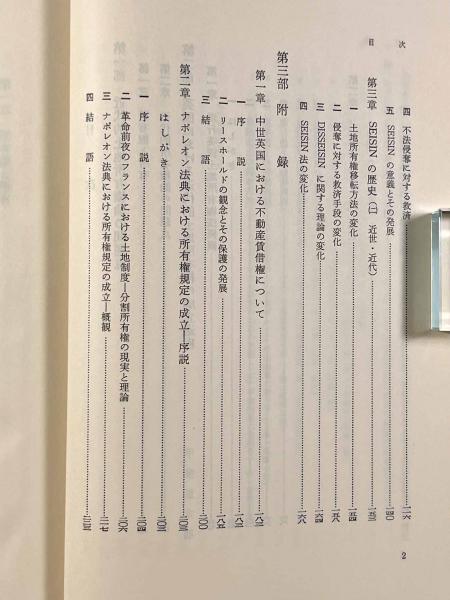 目次
四 不法侵奪に対する救済……一二六
五 SEISIN の意義とその発展……一四〇
第三章 SEISIN の歴史 (二 近世・近代)……一五三
一 土地所有権移転方法の変化……一五四
二 侵奪に対する救済手段の変化……一五八
三 DISSEISIN に関する理論の変化……一六四
四 SEISIN 法の変化……一六八
第三部 附録
第一章 中世英国における不動産賃借権について……一八二
一 序説……一八二
二 リースホールドの観念とその保護の発展……一八五
三 結語……二〇〇
第二章 ナポレオン法典における所有権規定の成立―序説……二〇三
はしがき……二〇三
一 序説……二〇四
二 革命前夜のフランスにおける土地制度―分割所有権の現実と理論……二〇六
三 ナポレオン法典における所有権規定の成立―概観……二一七
四 結語……二三三
2